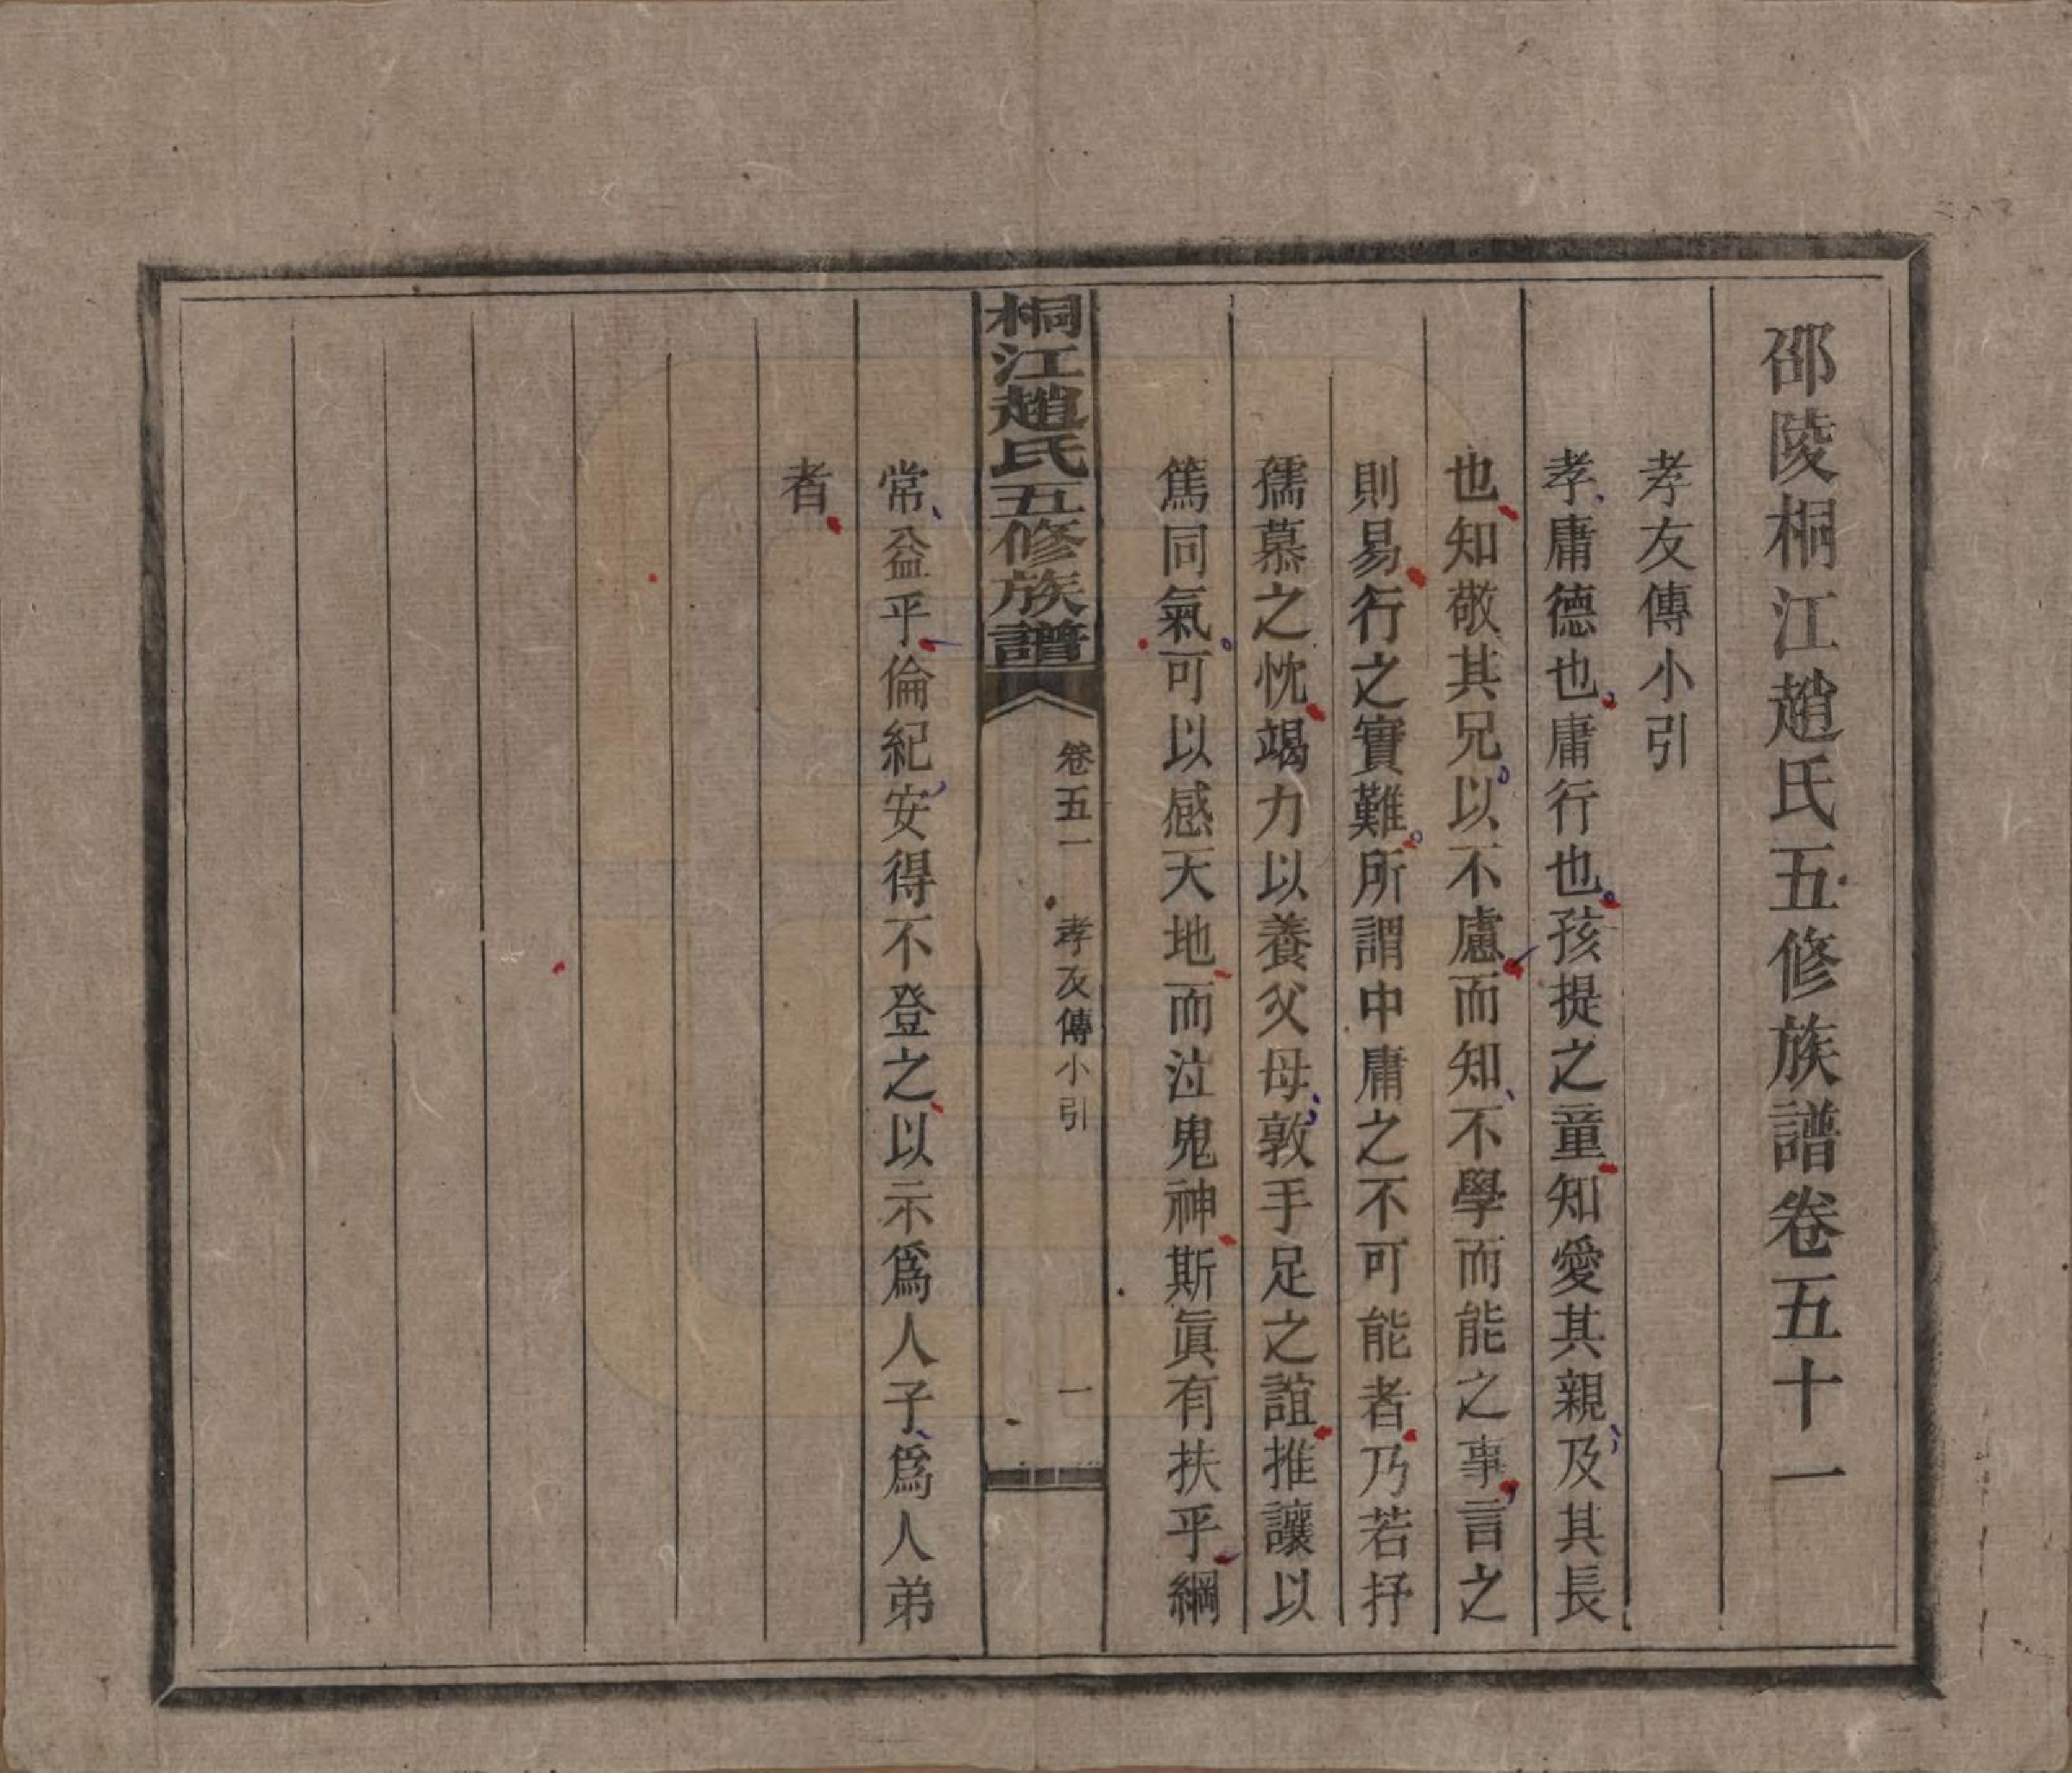 邵陵桐江趙氏五修族譜卷五十一
孝友傳小引
孝庸德也庸行也孩提之童知愛其親及其長
也知敬其兄以不慮而知不學而能之事言之
則易行之實難所謂中庸之不可能者乃若抒
孺慕之忱竭力以養父母敦手足之誼推讓以
篤同氣可以感天地而泣鬼神斯眞有扶乎綱
桐江趙氏五修族譜
卷五一
孝友傳小引
一
常益乎倫紀安得不登之以示爲人子爲人弟
者